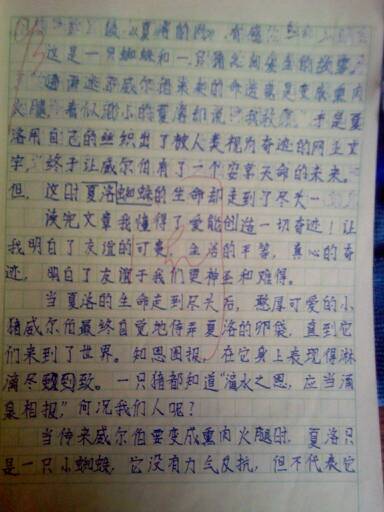 读《夏洛的网》有感
这是一只蜘蛛和一只猪之间发生的故事。
威尔伯未来的命运竟是变成熏肉
火腿。看似渺小的夏洛却说“我救你”于是夏
洛用自己的丝织出了被人类视为奇迹的网上文
字,终于让威尔伯有了一个安享天命的未来。
但,这时夏洛蜘蛛的生命却走到了尽头…
读完文章我懂得了爱能创造一切奇迹!让
我明白了友谊的可贵,生活的平等,真心的奇
迹,明白了友谊于我们更神圣和难得。
当夏洛的生命走到尽头后,憨厚可爱的小
猪威尔伯最终自觉地侍弄夏洛的卵袋,直到它
们来到了世界。知恩图报,在它身上表现得淋
漓尽致。一只猪都知道“滴水之恩,应当涌
泉相报,”何况我们人呢?
当传来威尔伯要变成熏肉火腿时,夏洛只
是一只小蜘蛛,它没有力气反抗,但不代表它